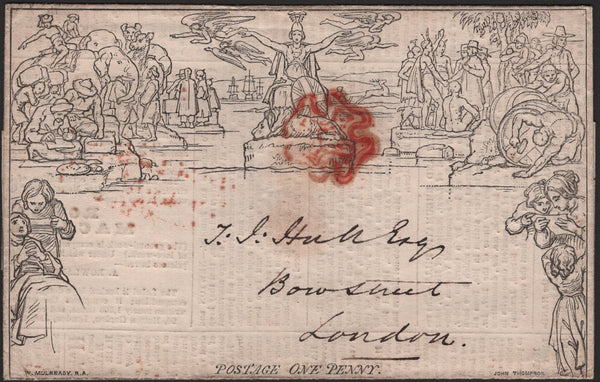 T. J. Hall Esq
Bow street
London.
W. MULREADY, R.A.
POSTAGE ONE PENNY.
JOHN THOMPSON